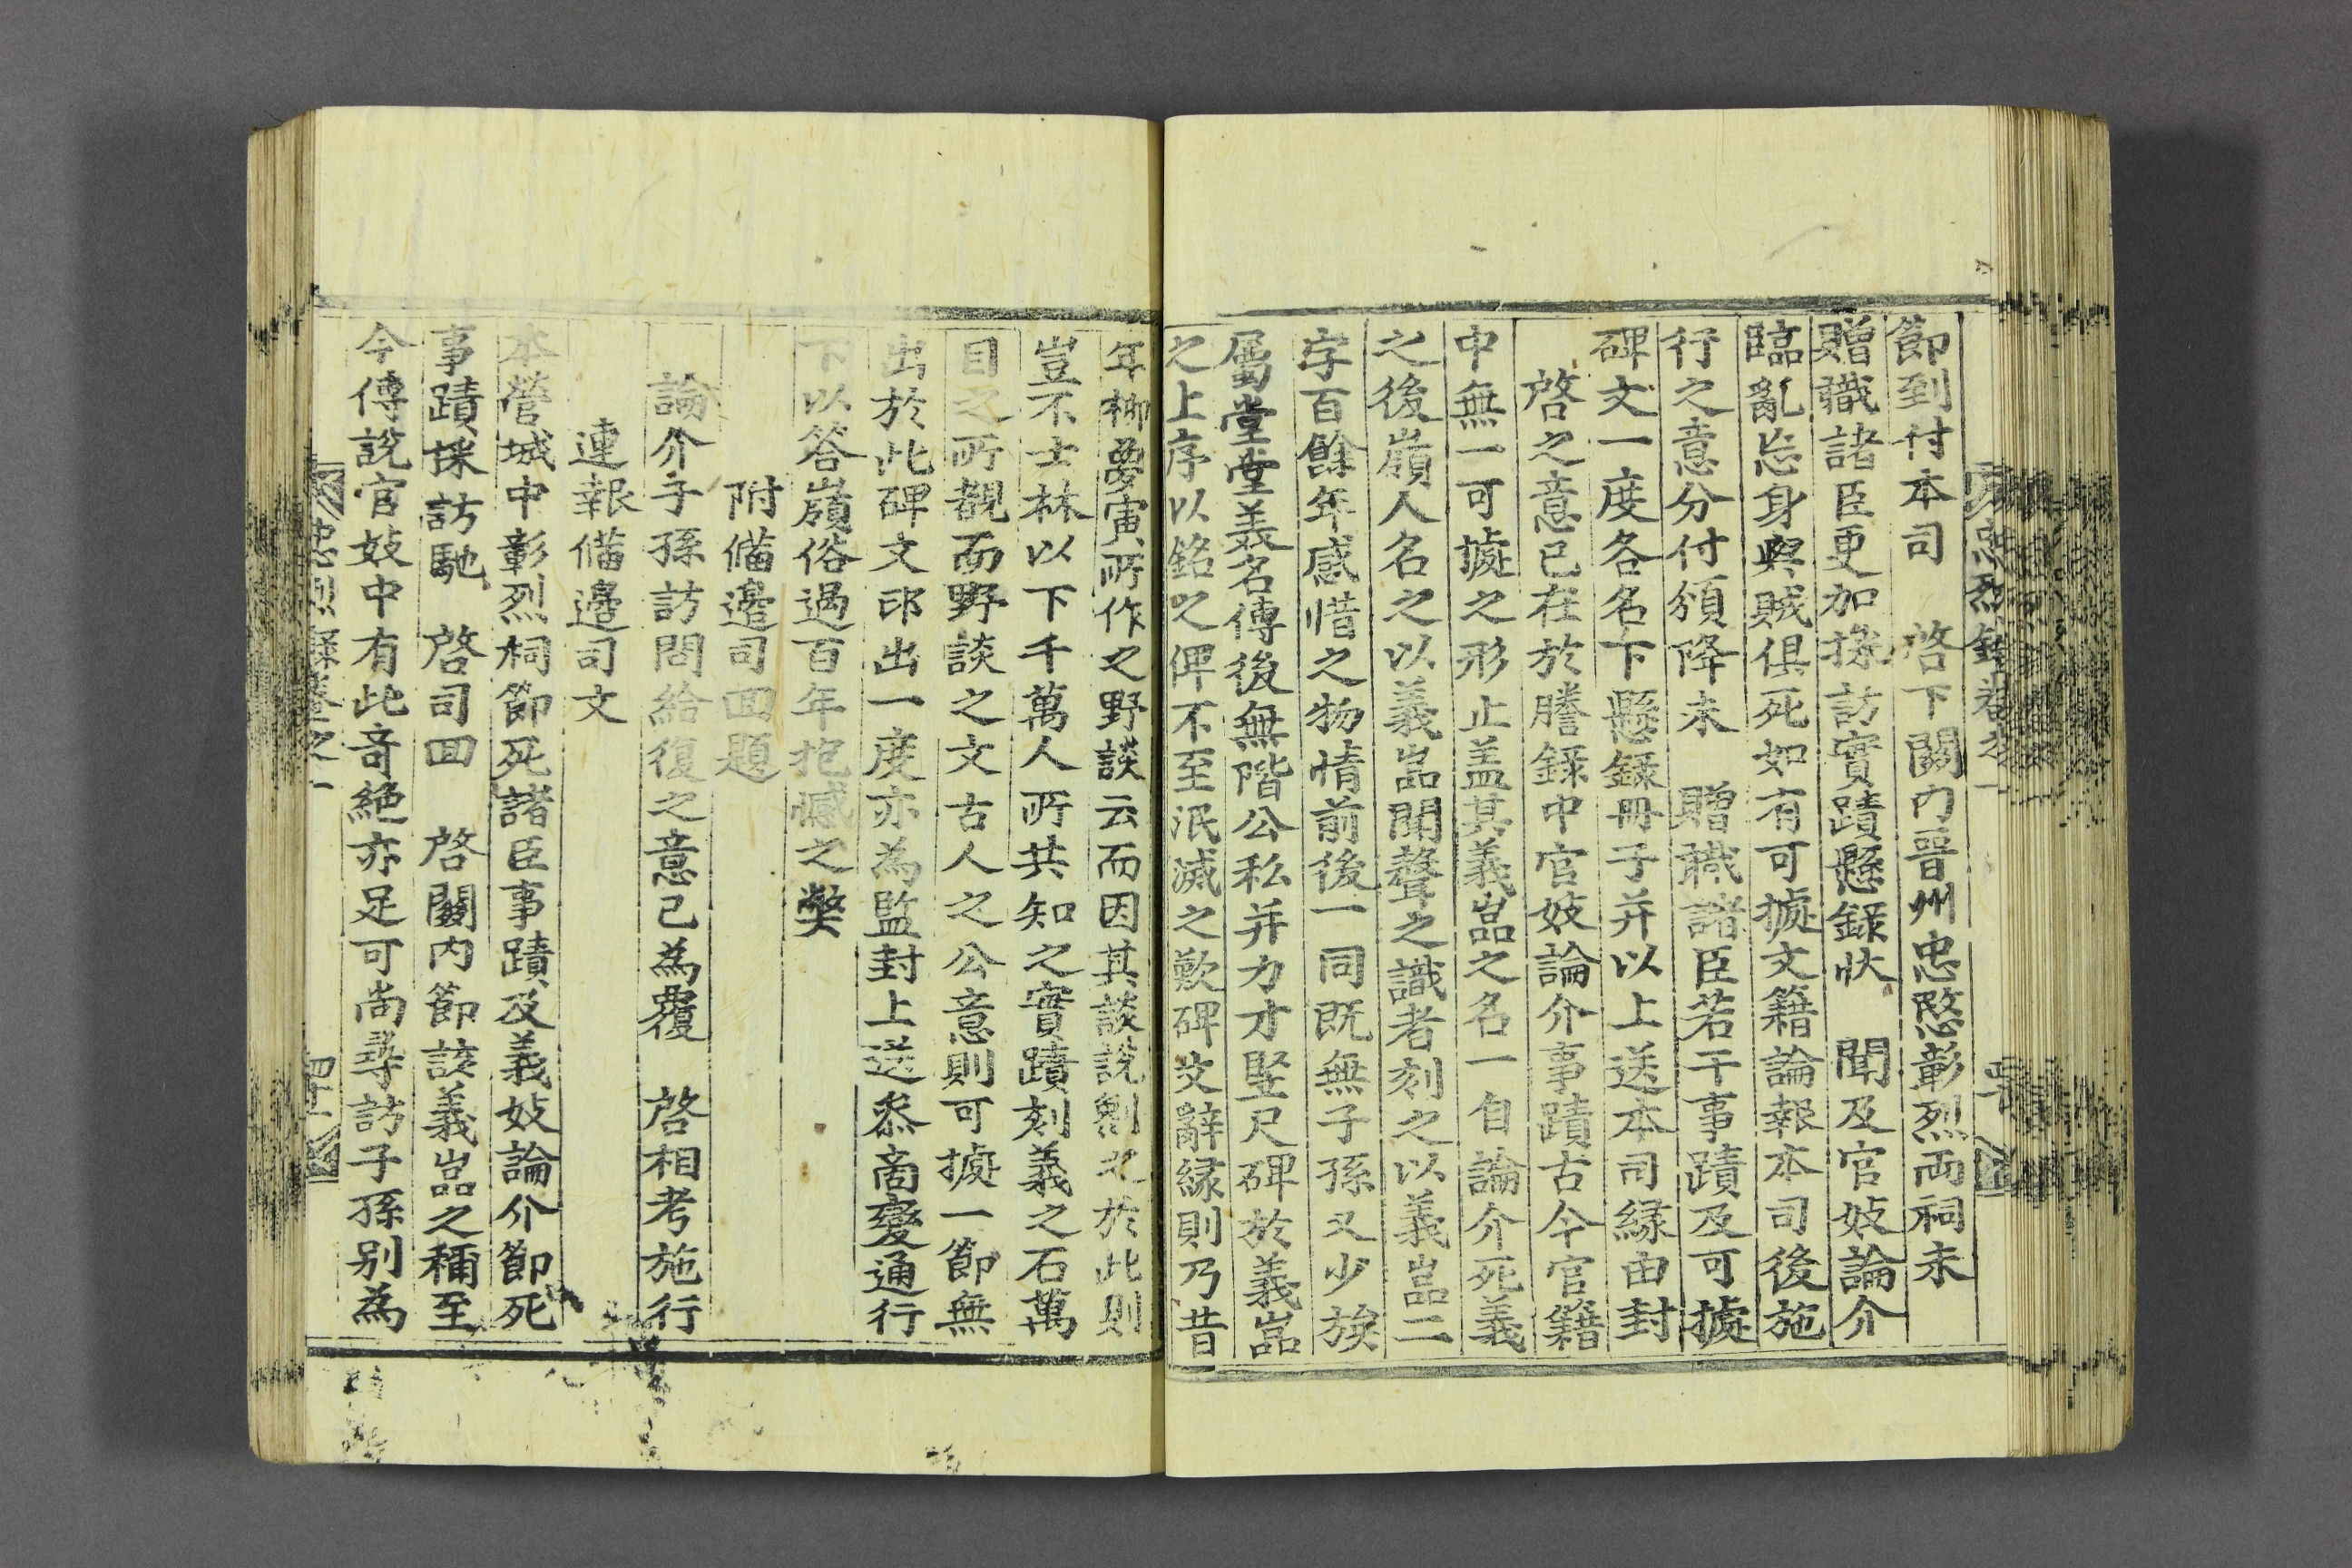 節到付本司 啓下關內晋州忠愍彰烈两祠未
贈職諸臣更加採訪實蹟懸錄狀 聞及官妓論介
臨亂忘身與賊俱死如有可㨿文籍論報本司後施
行之意分付頒降未 贈職諸臣若干事蹟及可㨿
碑文一度各名下懸錄冊子幷以上送本司緣由封
啓之意已在於謄錄中官妓論介事蹟古今官籍
中無一可㨿之形止盖其義嵓之名一自論介死義
之後嶺人名之以義嵓聞聲之識者刻之以義嵓二
字百餘年感惜之物情前後一同既無子孫又少族
屬堂堂義名傳後無階公私幷力才竪尺碑於義嵓
之上序以銘之俾不至泯滅之歎碑文辭緣則乃昔
年柳夢寅所作之野談云而因其談說劉之於此則
豈不士林以下千萬人所共知之實蹟刻義之石萬
目之所覩而野談之文古人之公意則可㨿一節無
出於此碑文印出一度亦為監封上送叅商變通行
下以答嶺俗過百年抱憾之弊
附備邊司回題
論介子孫訪問給復之意已為覆 啓相考施行
連報備邊司文
本營城中彰烈祠節死諸臣事蹟及義妓論介節死
事蹟採訪馳 啓司回 啓關內節該義嵓之稱至
今傳說官妓中有此奇絶亦足可尙尋訪子孫別為
忠烈錄卷之一